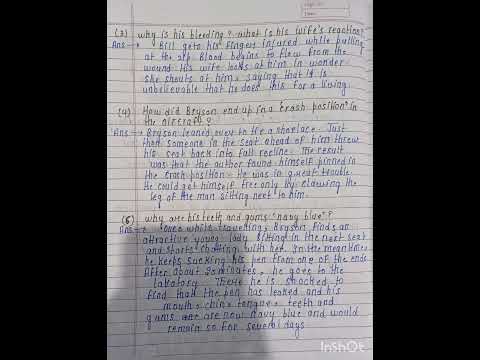 (3) why is his bleeding? what is his wife's reaction?
Ans → Bill gets his fingers injured while pulling
at the zip. Blood begins to flow from the
wound. His wife looks at him in wonder
she shouts at him, saying that it is
unbelievable that he does this for a living.
(4) How did Bryson end up in a "crash position" in
the aircraft?
Ans → Bryson leaned over to tie a shoelace. Just
then someone in the seat ahead of him threw
his seat back into full recline. The result
was that the author found himself pinned in
the crash position. He was in great trouble.
He could get himself free only by clawing the
leg of the man sitting next to him.
(5) why are his teeth and gums "navy blue"?
Ans → Once while travelling, Bryson finds an
attractive young lady sitting in the next seat
and starts chatting with her. In the meantime,
he keeps sucking his pen from one of the ends
After about 20 minutes, he goes to the
lavatory. There he is shocked to
find that the pen has leaked and his
mouth, chin, tongue, teeth and
gums are now navy blue and would
remain so for several days
InShOt